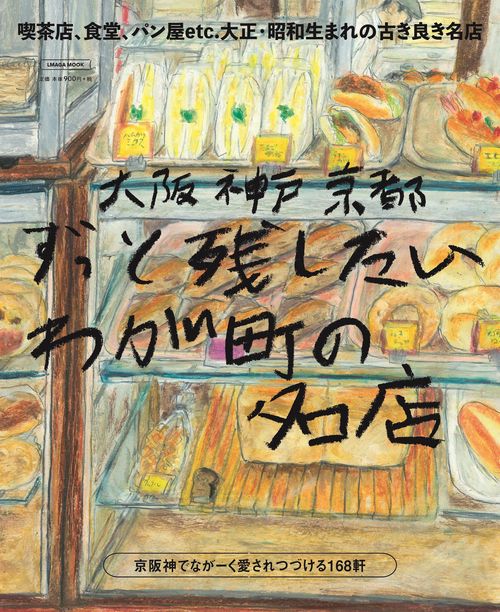 喫茶店、食堂、パン屋etc.大正・昭和生まれの古き良き名店
LMAGA MOOK
定価 本体900円+税
大阪 神戸 京都
ずっと残したい
わが町の
名店
京阪神でながーく愛されつづける168軒